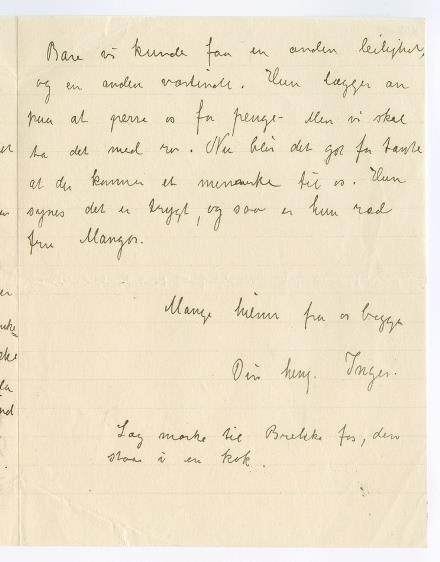 Bare vi kunde faa en anden leilighet,
og en anden vertinde. Hun lægger an
paa at presse os for penge. Men vi skal
ta det med ro. Nu blir det got for tante
at du kommer et menneske til os. Hun
synes det er trygt, og saa er hun rød
fru Mangor.
Mange hilsner fra os begge
Din heng. Inger.
Lag mørke til Brekke for, den
staar i en kok.